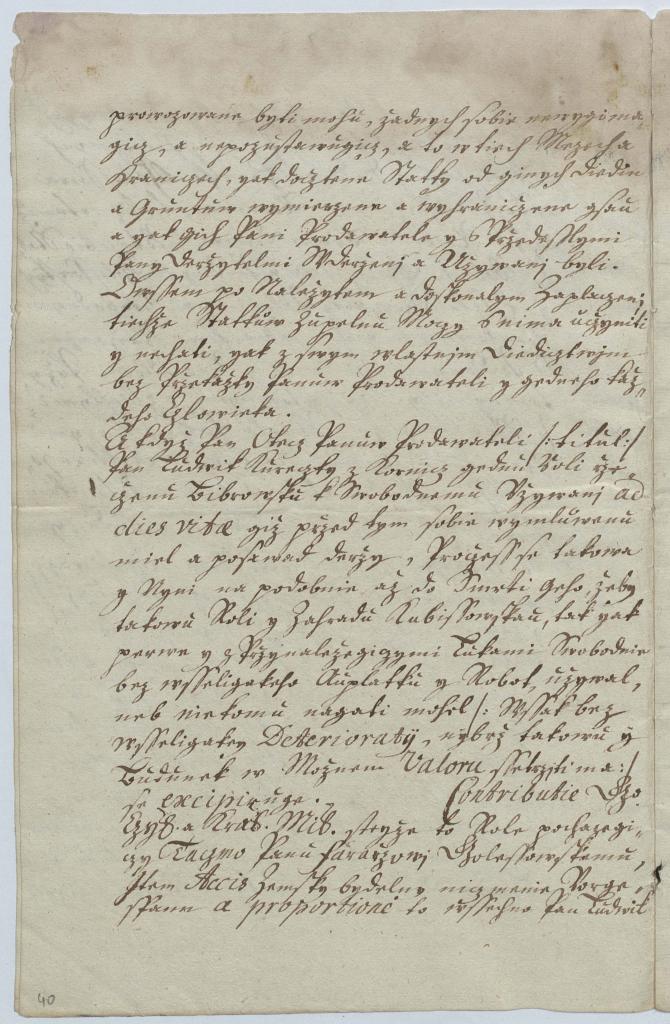 prowozowane byti mohu, zadnych sobie newygima
gicz, a nepozustawugicz, a to w tiech Mezech a
Hraniczech, yak docztene Statky od ginych Diedin
a Gruntuw wymierzene a wyhraniczene gsau
a yak gich Pani Prodawatele y s Przedesslymi
Pany Derzytelmi W Derzenj a Uzywanj byli.
Owssem po Nalezytem a doskonalym Zaplaczenj
tiechze Statkuw Zupelnu Moczy s nima ucziniti
y nechati, yak z swym wlastnim Diedicztwim
bez Przekazky Panuw Prodawateli y gedneho kaz
deho Czlowieka.
A kdyz Pan Otecz Panuw Prodawateli /: titul :/
Pan Ludwik Kureczky z Kornicz gednu Roli rze
czenu Bibrowsku k Swobodnemu Uzywanj ad
dies vitæ giz przed tym sobie wymluwenu
miel a posawad derzy, Procz se takowa
y Nyni na podobnie az do Smrti Geho, zeby
takowu Roli y Zahradu Kubissowskau, tak yak
perwe y z Przynalezegiczymi Lukami Swobodnie
bez wsseligakeho Auplatku y Robot, uzywal,
neb niekomu nagati mohel /: Wssak bez
wsseligakey Deterioratij, nybrz takowu y
Budunek w Moznem Valoru ssetrziti ma :/
se excipiruge. Contributie
Czys. a Kral. Mti. steyze to Role pochazegi
czy Taczmo Panu Fararzowj Golessowskemu,
Item Accis Zemsky bydelny nicz menie Vorge
spann a proportione to wssechno Pan Ludwik
40